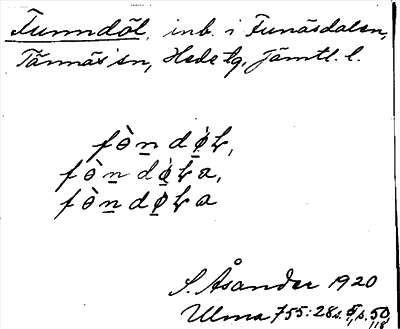 Funndöl, inb. i Funäsdalen,
Tännäs sn, Hede tg, Jämtl. l.
fὸn̲dø̲̀ɫ,
fὸn̲dø̲̀ɫa,
fὸn̲dø̲ɫa
S. Åsander 1920
Ulma 755:28 s. 5, p. 50,
118